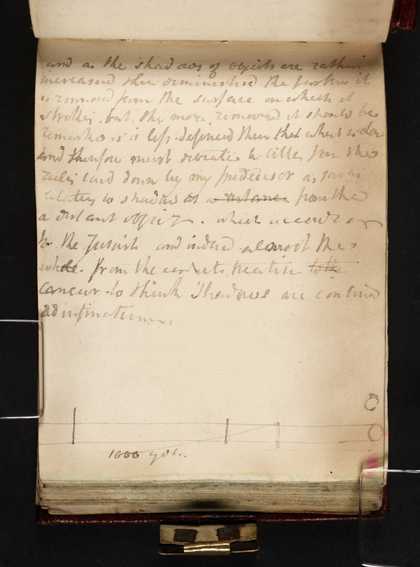 and as the shadows of objects are rather
increased than diminished the further it
is removed from the surface on which it
strikes. but the more removed it should be
remarked is less defined than that which is close
and therefore must deviate a little from the
rules laid down by my predecessor as far as
relates to shadows at a distance from the
a distant object. which accords
to the Jesuit and indeed almost the
whole. from the treatise to the
concur to think Shadows are continued
ad infinitum.
1000 yds.